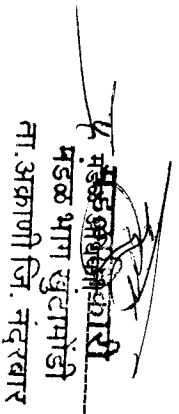 मंडळ अधिकारी
मंडळ भाग खुटामोडी
ता.अक्राणी जि. नंदुरबार